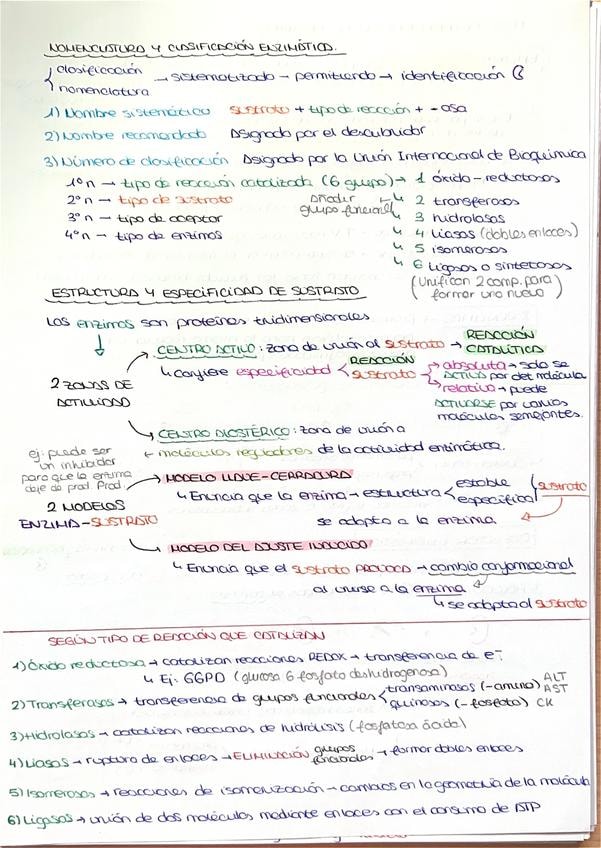 NOMENCLATURA Y CLASIFICACIÓN ENZIMÁTICA.
clasificación
nomenclatura → sistematizado → permitiendo → identificación
1) Nombre sistemático sustrato + tipo de reacción + -asa
2) Nombre recomendado Asignado por el descubridor
3) Número de clasificación Asignado por la Unión Internacional de Bioquímica
1º n → tipo de reacción catalizada (6 grupos) → 1 óxido-reductasas
2º n → tipo de sustrato añadir grupo funcional ↳ 2 transferasas
3º n → tipo de aceptor ↳ 3 hidrolasas
4º n → tipo de enzima ↳ 4 liasas (dobles enlaces)
↳ 5 isomerasas
↳ 6 Ligasas o sintetasas
(Unifican 2 comp. para formar uno nuevo)
ESTRUCTURA Y ESPECIFICIDAD DE SUSTRATO
Las enzimas son proteínas tridimensionales
2 ZONAS DE ACTIVIDAD
CENTRO ACTIVO: zona de unión al sustrato → REACCIÓN CATALÍTICA
↳ Confiere especificidad < REACCIÓN
SUSTRATO → absoluta → solo se ACTIVA por det molécula
→ relativa → puede ACTIVARSE por varias moléculas semejantes.
CENTRO ALOSTÉRICO: zona de unión a
moléculas reguladores de la actividad enzimática.
ej: puede ser un inhibidor para que la enzima deje de prod. Prod.
2 MODELOS ENZIMA-SUSTRATO
MODELO LLAVE-CERRADURA
↳ Enuncia que la enzima → estructura < estable
específica sustrato
se adapta a la enzima.
MODELO DEL AJUSTE INDUCIDO
↳ Enuncia que el sustrato PROVOCA → cambio conformacional
al unirse a la enzima
↳ se adapta al sustrato
SEGÚN TIPO DE REACCIÓN QUE CATALIZAN
1) Óxido reductasa → catalizan reacciones REDOX → transferencia de e⁻
↳ Ej: G6PD (glucosa 6 fosfato deshidrogenasa)
2) Transferasas → transferencia de grupos funcionales → transaminasas (-amino) ALT AST
quinasas (-fosfato) CK
3) Hidrolasas → catalizan reacciones de hidrólisis (fosfatasa ácida)
4) Liasas → ruptura de enlaces → ELIMINACIÓN grupos funcionales → formar dobles enlaces
5) Isomerasas → reacciones de isomerización → cambios en la geometría de la molécula
6) Ligasas → unión de dos moléculas mediante enlaces con el consumo de ATP